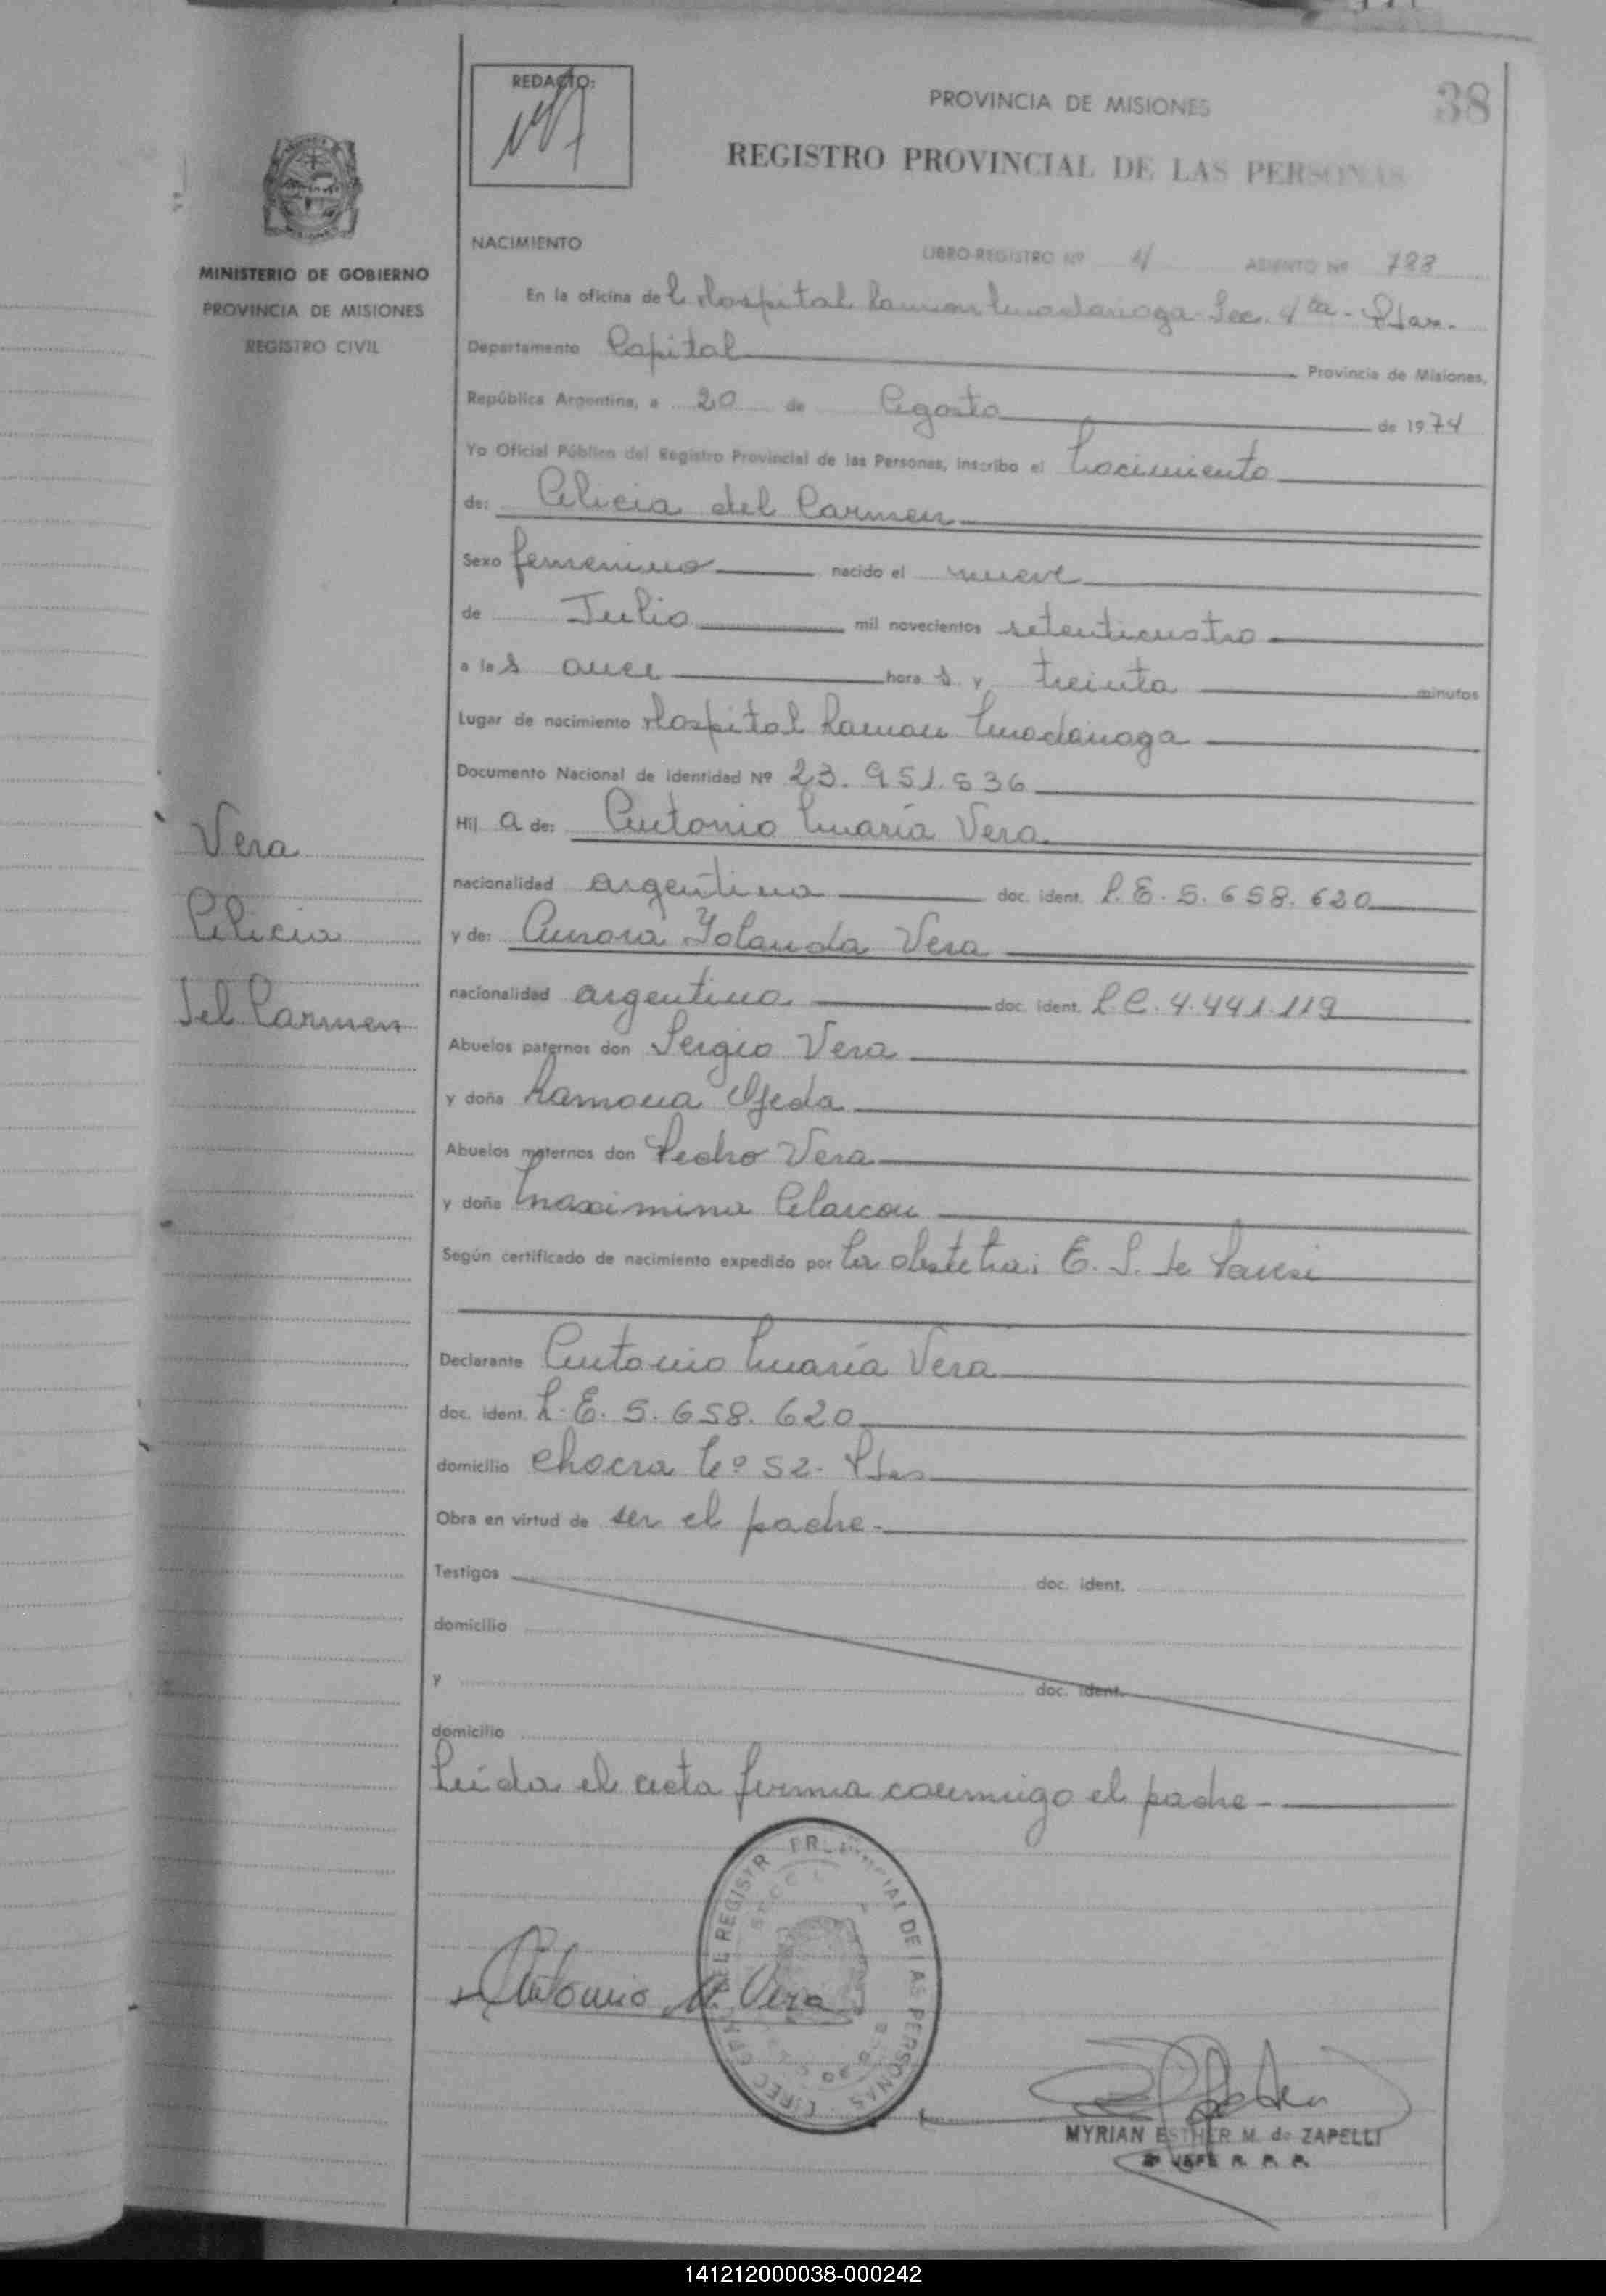 38
REDACTO:
PROVINCIA DE MISIONES
REGISTRO PROVINCIAL DE LAS PERSONAS
MINISTERIO DE GOBIERNO
PROVINCIA DE MISIONES
REGISTRO CIVIL
NACIMIENTO LIBRO-REGISTRO Nº 4 ASIENTO Nº 788
En la oficina de l Hospital Ramon Madariaga Sec. 4ta - Pdas.
Departamento Capital Provincia de Misiones,
República Argentina, a 20 de Agosto de 1974
Yo Oficial Público del Registro Provincial de las Personas, inscribo el Nacimiento
de: Alicia del Carmen
Sexo femenino nacido el nueve
de Julio mil novecientos setenticuatro
a las once horas y treinta minutos
Lugar de nacimiento Hospital Ramon Madariaga
Documento Nacional de Identidad Nº 23.951.836
Hij a de: Antonio María Vera
nacionalidad argentina doc. ident. L.E. 5.658.620
y de: Aurora Yolanda Vera
nacionalidad argentina doc. ident. L.C. 4.441.119
Abuelos paternos don Sergio Vera
y doña Ramona Ojeda
Abuelos maternos don Pedro Vera
y doña Maximina Alarcon
Según certificado de nacimiento expedido por la obstetra: E. S. de
Declarante Antonio María Vera
doc. ident. L.E. 5.658.620
domicilio chacra Nº 52. Pdas
Obra en virtud de ser el padre.
Testigos doc. ident.
domicilio
y doc. ident.
domicilio
Leída el acta firma conmigo el padre
Vera
Alicia
del Carmen
Antonio M. Vera
DIREC GRAL DEL REGISTR PROVINCIAL DE LAS PERSONAS
MYRIAN ESTHER M. de ZAPELLI
JEFE R. P. P.
141212000038-000242